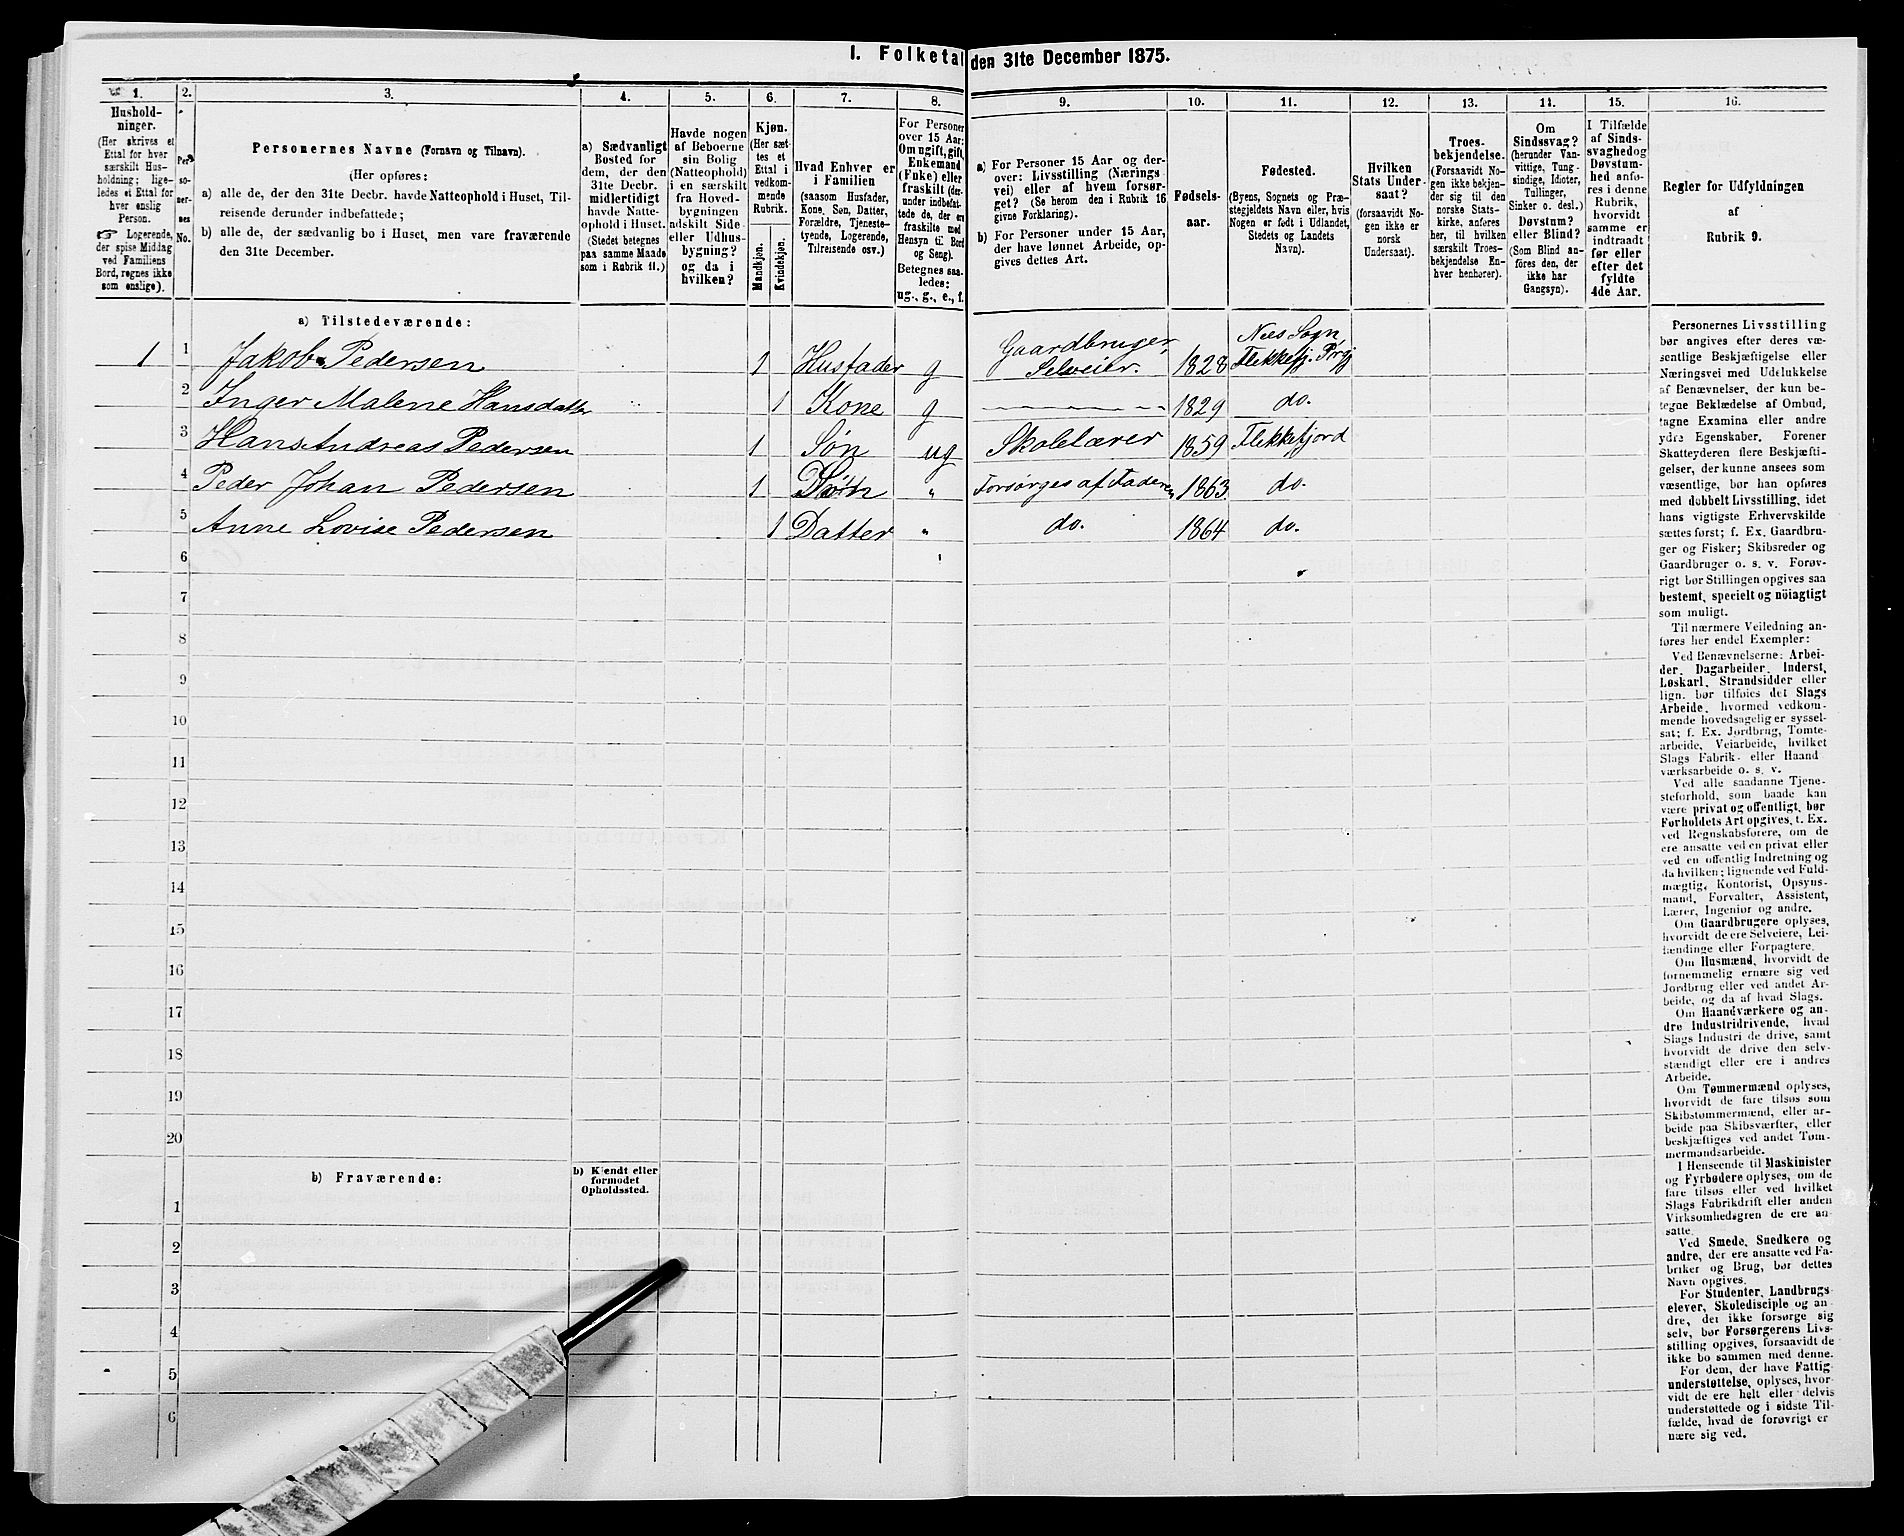 1. Folketal den 31te December 1875.
1.
Hushold-
ninger.
(Her skrives et
Ettal for hver
særskilt Hus-
holdning; lige-
ledes et Ettal for
hver enslig
Person.
Logerende,
der spise Middag
ved Familiens
Bord, regnes ikke
som enslige).
2.
Per-
so-
ner-
nes
No.
3.
Personernes Navne (Fornavn og Tilnavn).
(Her opføres:
a) alle de, der den 31te Decbr. havde Natteophold i Huset, Til-
reisende derunder indbefattede;
b) alle de, der sædvanlig bo i Huset, men vare fraværende
den 31te December.
4.
a) Sædvanligt
Bosted for
dem, der den
31te Decbr.
midlertidigt
havde Natte-
ophold i Huset.
(Stedet betegnes
paa samme Maade
som i Rubrik 11.)
5.
Havde nogen
af Beboerne
sin Bolig
(Natteophold)
i en særskilt
fra Hoved-
bygningen
adskilt Side-
eller Udhus-
bygning?
og da i
hvilken?
6.
Kjøn.
(Her sæt-
tes et
Ettal i
vedkom-
mende
Rubrik.
Mandkjøn.
Kvindekjøn.
7.
Hvad Enhver er
i Familien
(saasom Husfader,
Kone, Søn, Datter,
Forældre, Tjeneste-
tyende, Logerende,
Tilreisende osv.)
8.
For Personer
over 15 Aar:
Om ugift, gift,
Enkemand
(Enke) eller
fraskilt (der-
under indbefat-
tede de, der ere
fraskilte med
Hensyn til Bord
og Seng).
Betegnes saa-
ledes:
ug., g., e., f.
9.
a) For Personer 15 Aar og der-
over: Livsstilling (Nærings
vei) eller af hvem forsør-
get? (Se herom den i Rubrik 16
givne Forklaring).
b) For Personer under 15 Aar,
der have lønnet Arbeide, op-
gives dettes Art.
10.
Fødsels-
aar.
11.
Fødested.
(Byens, Sognets og Præ-
stegjeldets Navn eller, hvis
Nogen er født i Udlandet,
Stedets og Landets
Navn).
12.
Hvilken
Stats Under-
saat?
(forsaavidt No-
gen ikke er
norsk
Undersaat).
13.
Troes-
bekjendelse.
(Forsaavidt No-
gen ikke bekjen-
der sig til den
norske Stats-
kirke, anføres
her, til hvilken
særskilt Troes-
bekjendelse En-
hver henhører).
14.
Om
Sindssvag?
(herunder Van-
vittige, Tung-
sindige, Idioter,
Tullinger,
Sinker o. desl.)
Døvstum?
eller Blind?
(Som Blind an-
føres den, der
ikke har
Gangsyn).
15.
I Tilfælde
af Sinds-
svaghed og
Døvstum-
hed anfø-
res i denne
Rubrik,
hvorvidt
samme er
indtraadt
før eller
efter det
fyldte
4de Aar.
16.
Regler for Udfyldningen
af
Rubrik 9.
a) Tilstedeværende:
1 1 Jakob Pedersen 1 Husfader g Gaardbruger, Selveier. 1828 Nees Sogn Flekkefj. Prgj
2 Inger Malene Hansdatter 1 Kone g 1829 do.
3 Hans Andreas Pedersen 1 Søn ug Skolelærer 1859 Flekkefjord
4 Peder Johan Pedersen 1 Søn " Forsørges af Faderen 1863 do.
5 Anne Lovise Pedersen 1 Datter " do. 1864 do.
6
7
8
9
10
11
12
13
14
15
16
17
18
19
20
b) Fraværende:
b) Kjendt eller
formodet
Opholdssted.
1
2
3
4
5
6
Personernes Livsstilling
bør angives efter deres væ-
sentlige Beskjæftigelse eller
Næringsvei med Udelukkelse
af Benævnelser, der kun be-
tegne Beklædelse af Ombud,
tagne Examina eller andre
ydre Egenskaber. Forener
Skatteyderen flere Beskjæfti-
gelser, der kunne ansees som
væsentlige, bør han opføres
med dobbelt Livsstilling, idet
hans vigtigste Erhvervskilde
sættes først; f. Ex. Gaardbru-
ger og Fisker; Skibsreder og
Gaardbruger o. s. v. Forøv-
rigt bør Stillingen opgives saa
bestemt, specielt og nöiagtigt
som muligt.
Til nærmere Veiledning an-
føres her endel Exempler:
Ved Benævnelserne: Arbei-
der, Dagarbeider, Inderst,
Løskarl, Strandsidder eller
lign. bør tilføies det Slags
Arbeide, hvormed vedkom-
mende hovedsagelig er syssel-
sat; f. Ex. Jordbrug, Tomte-
arbeide, Veiarbeide, hvilket
Slags Fabrik- eller Haand
værksarbeide o. s. v.
Ved alle saadanne Tjene-
steforhold, som baade kan
være privat og offentligt, bør
Forholdets Art opgives, t. Ex.
ved Regnskabsførere, om de
ere ansatte ved en privat eller
ved en offentlig Indretning og
da hvilken; lignende ved Fuld-
mægtig, Kontorist, Opsyns-
mand, Forvalter, Assistent,
Lærer, Ingeniør og andre.
Om Gaardbrugere oplyses,
hvorvidt de ere Selveiere, Lei-
lændinge eller Forpagtere.
Om Husmænd, hvorvidt de
fornemmelig ernære sig ved
Jordbrug eller ved andet Ar-
beide, og da af hvad Slags.
Om Haandværkere og an-
dre Industridrivende, hvad
Slags Industri de drive, samt
hvorvidt de drive den selv-
stændigt eller ere i andres
Arbeide.
Om Tømmermænd oplyses,
hvorvidt de fare tilsøs som
Skibstømmermænd, eller ar-
beide paa Skibsværfter, eller
beskjæftiges ved andet Tøm-
mermandsarbeide.
I Henseende til Maskinister
og Fyrbødere oplyses, om de
fare tilsøs eller ved hvilket
Slags Fabrikdrift eller anden
Virksomhedsgren de ere an-
satte.
Ved Smede, Snedkere og
andre, der ere ansatte ved Fa-
briker og Brug, bør dettes
Navn opgives.
For Studenter, Landbrugs-
elever, Skoledisciple og an-
dre, der ikke forsørge sig
selv, bør Forsørgerens Livs-
stilling opgives, forsaavidt de
ikke bo sammen med denne.
For dem, der have Fattig-
understøttelse, oplyses, hvor-
vidt de ere helt eller delvis
understøttede og i sidste Til-
fælde, hvad de forøvrigt er
nære sig ved.